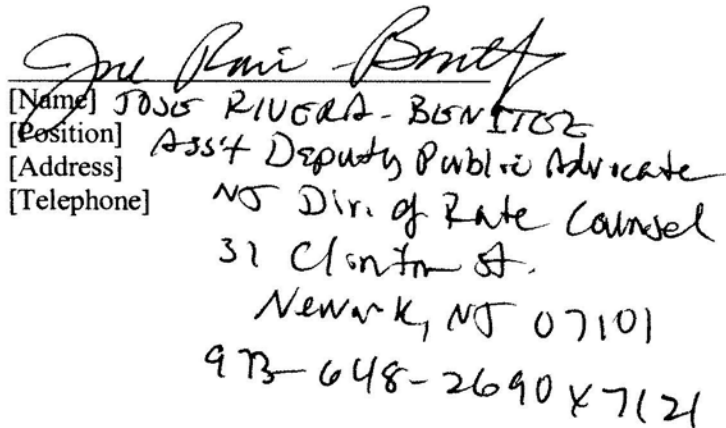 Jose Rivera-Benitez
[Name] JOSE RIVERA-BENITEZ
[Position] Ass't Deputy Public Advocate
[Address] NJ Div. of Rate Counsel
[Telephone] 31 Clinton St.
Newark, NJ 07101
973-648-2690 x7121